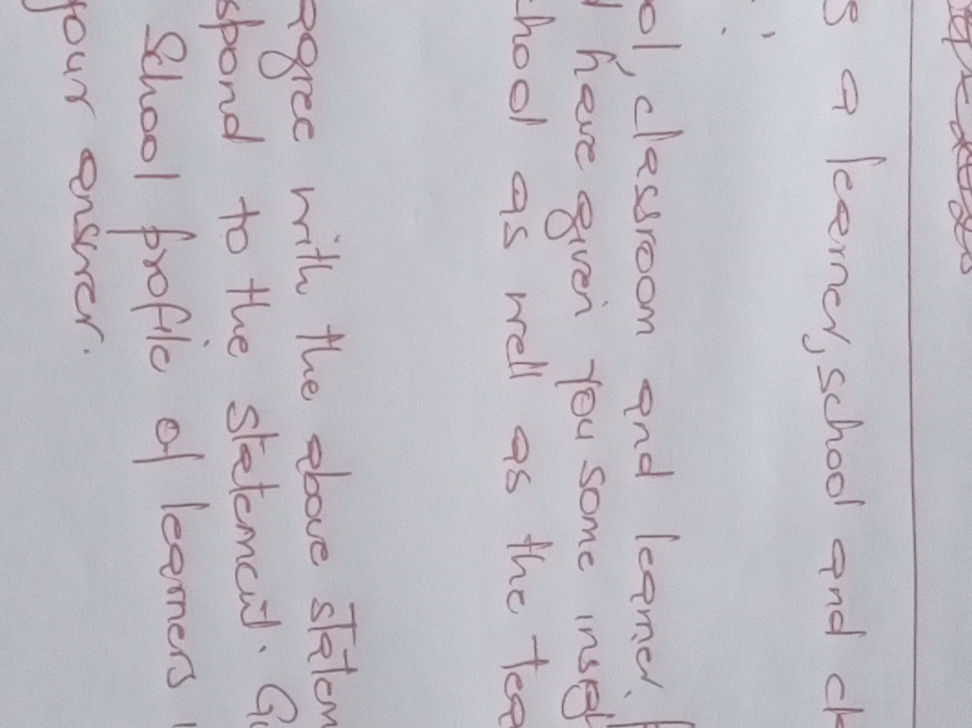 s a learner, school and
ol, classroom and learner.
have given you some
hool as well as the
agree with the above statem
spond to the statement.
School profile of learners
your answer.